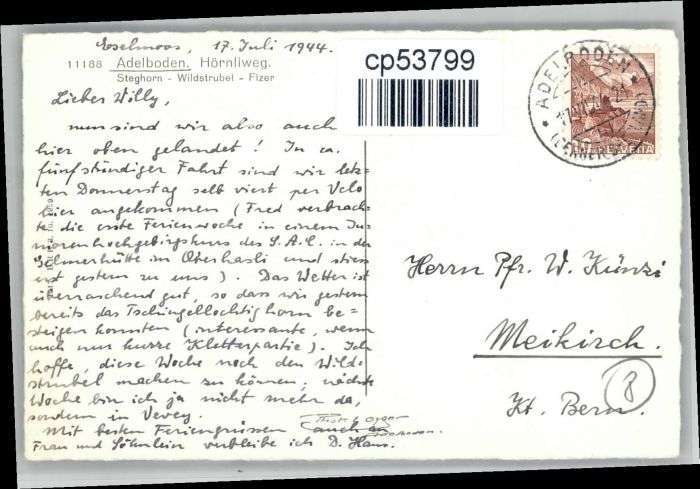 Esselmoos, 17. Juli 1944.
11188 Adelboden. Hörnliweg.
Steghorn - Wildstrubel - Fizer
cp53799
ADELBODEN
HELVETIA
Lieber Willy,
nun sind wir also auch
hier oben gelandet! In ca.
fünfstündiger Fahrt sind wir letz-
ten Donnerstag selb viert per Velo
hier angekommen (Fred verbrach-
te die erste Ferienwoche in einem Ju-
niorenhochgebirgskurs des S.A.C. in der
Gelmerhütte im Oberhasli und stiess
erst gestern zu uns). Das Wetter ist
überraschend gut, so dass wir gestern
bereits das Tschingellochtighorn be-
steigen konnten (interessante, wenn
auch nur kurze Kletterpartie). Ich
hoffe, diese Woche noch den Wild-
strubel machen zu können; nächste
Woche bin ich ja nicht mehr da,
sondern in Vevey.
Mit besten Feriengrüssen auch an
Frau und Söhnlein verbleibe ich D. Hans.
Herrn Pfr. W. Künzi
Meikirch.
Kt. Bern.
8